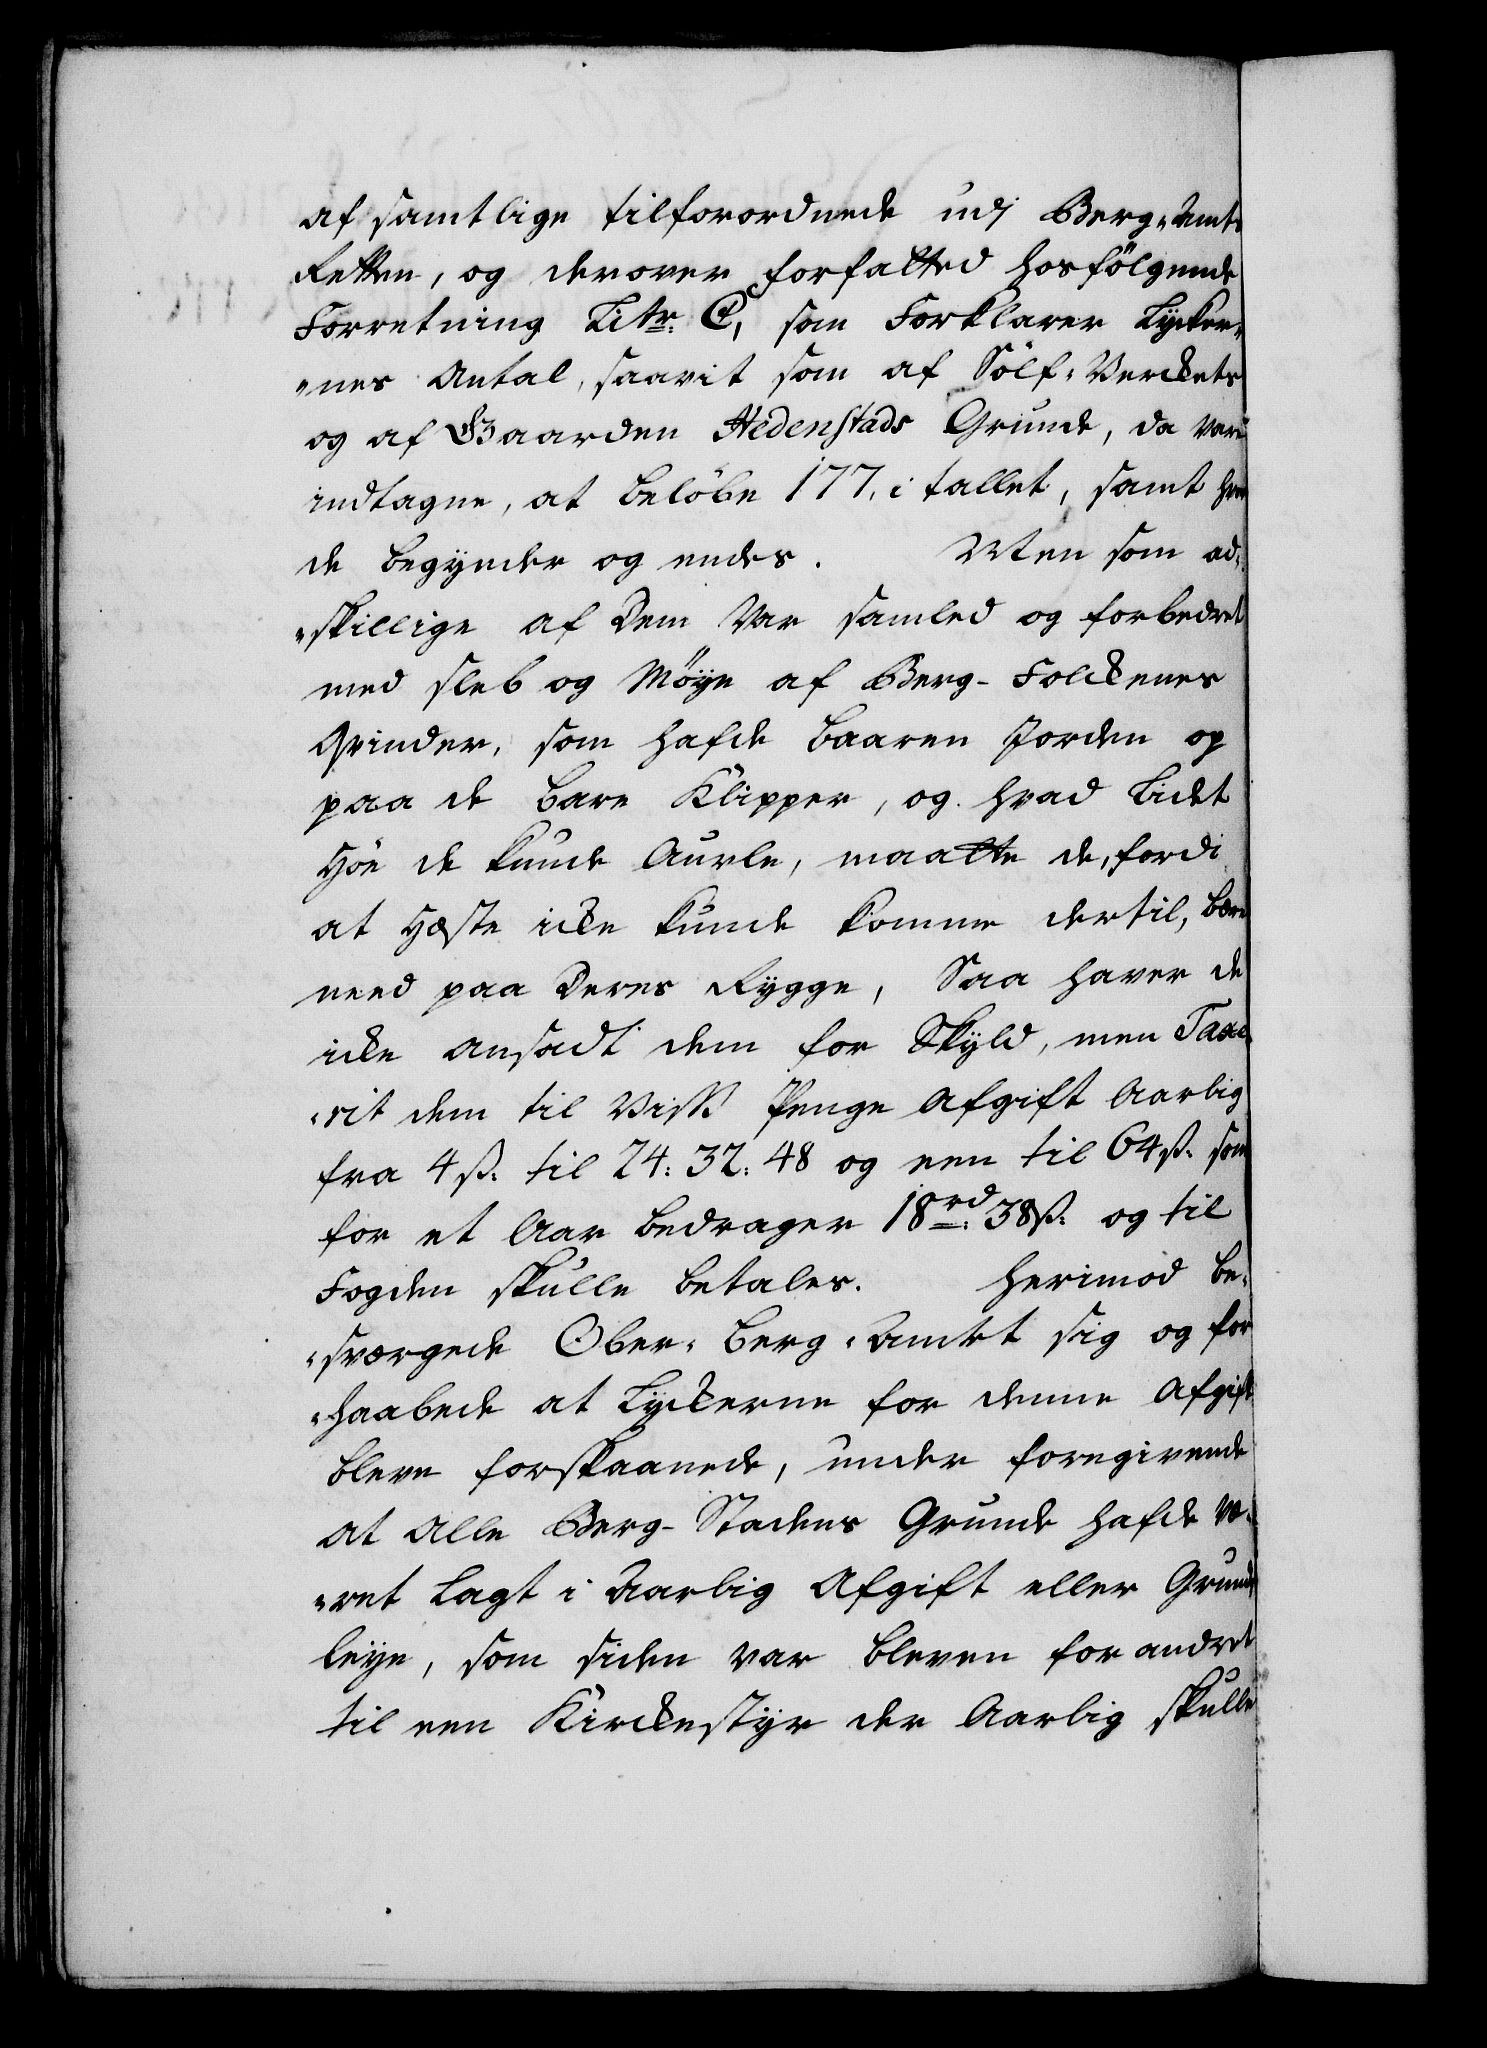 af samtlige tilforordnede udj Berg-Amts
Retten, og derover forfatted hosfölgende
Forretning Litr: C, som Forklarer Lycker„
„nes Antal, saavit som af Sölf-Verckets
og af Gaarden Hedenstads Grunde, da vare
indtagne, at belöbe 177, i tallet, samt hvor
de begynder og endes. Men som ad„
„skillige af dem var samled og forbedret
med sleb og Möye af Berg-Folckenes
Qvinder, som hafde baaren Jorden op
paa de bare Klipper, og hvad lidet
Höe de kunde aurle, maatte de, fordi
at Hæste icke kunde komme dertil, bære
need paa deres Rygge, Saa haver de
icke ansadt dem for Skyld, men Taxe„
„rit dem til Viss Penge Afgift Aarlig
fra 4 s: til 24: 32: 48 og een til 64 s: som
for et Aar bedrager 18 rd: 38 s: og til
Fogden skulle betales. Herimod be„
„sværgede Ober-Berg-Amtet sig og for
„haabede at Lyckerne for denne Afgift
bleve forskaanede, under foregivende
at alle Berg-Stadens Grunde hafde væ„
„ret lagt i Aarlig Afgift eller Grund
leye, som siden var bleven forandret
til een Kirckestyr der Aarlig skulle